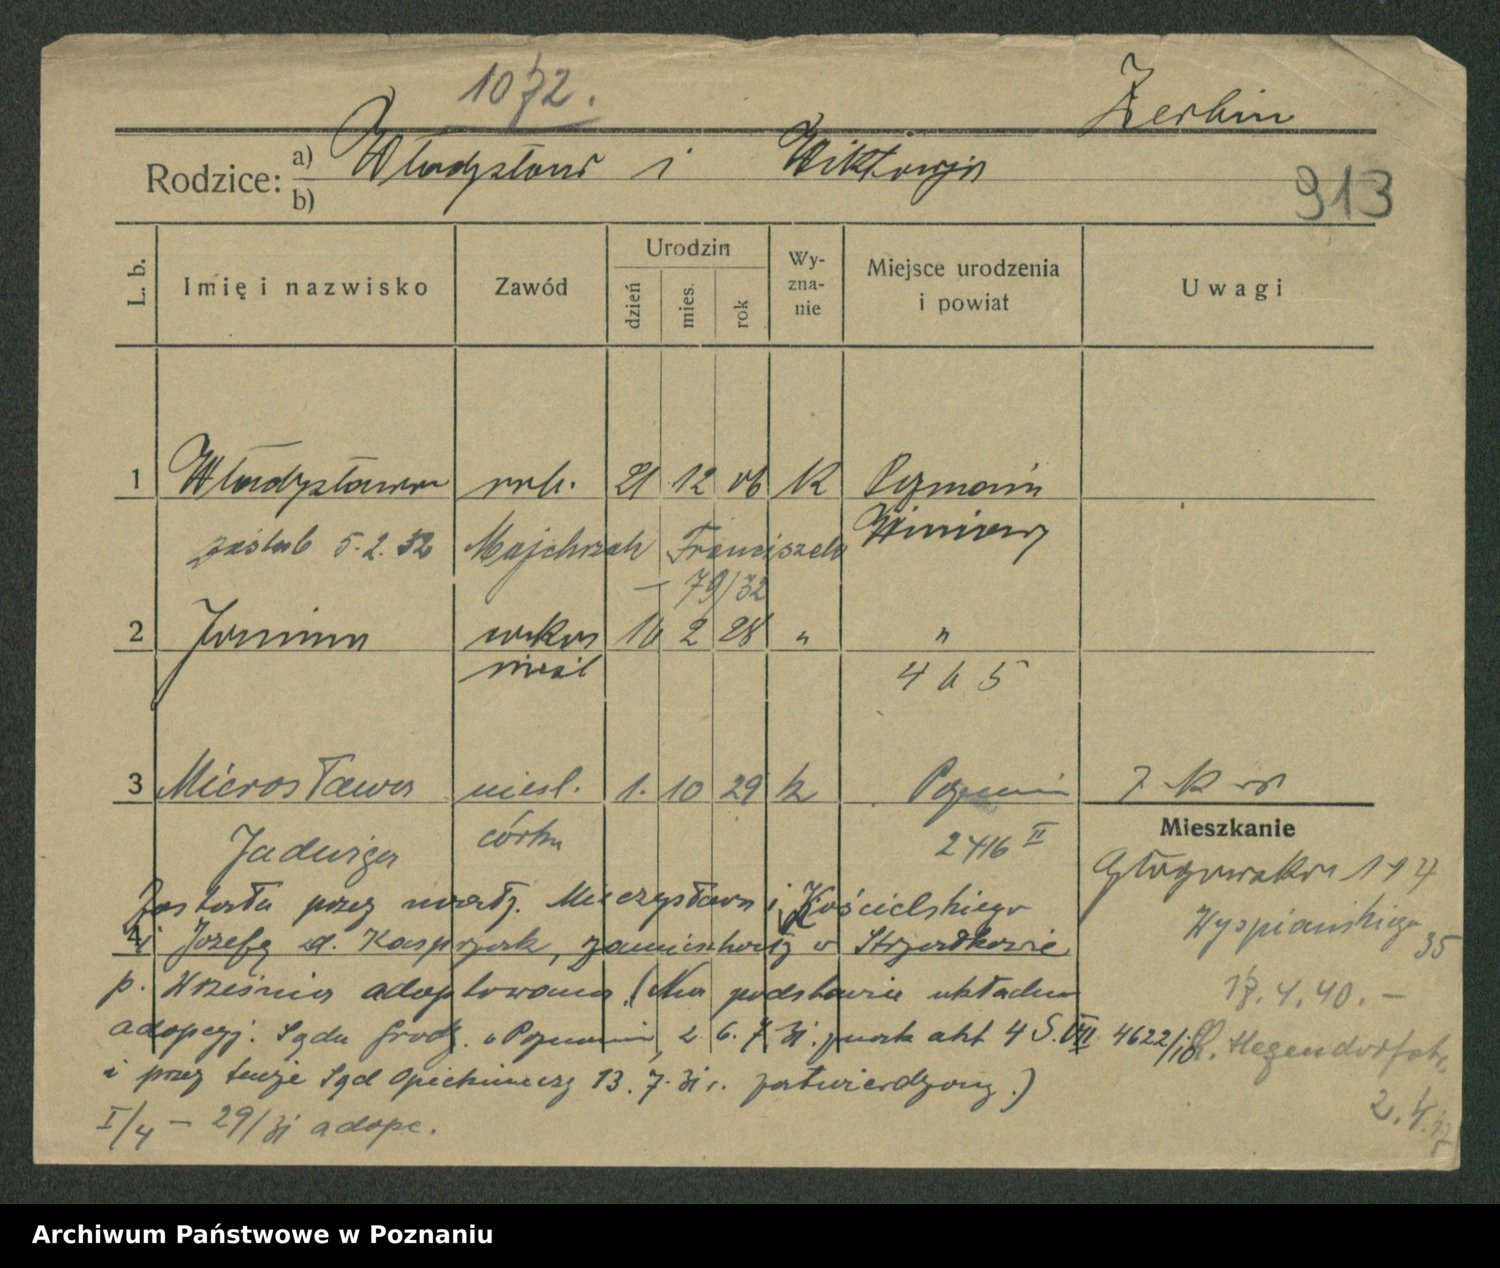 1072.
Zerbin
Rodzice: a) Władysław i Wiktorja
b)
913
L. b. Imię i nazwisko Zawód Urodzin dzień mies. rok Wyznanie Miejsce urodzenia i powiat Uwagi
1 Władysława rob. 21 12 06 K Poznań
zaślub 5.2.32 Majchrzak Franciszek Winiary
— 79/32
2 Janina córka 16 2 28 " "
nieśl 465
3 Mirosława nieśl. 1. 10 29 k Poznań
Jadwiga córka 2416 II
Mieszkanie
Głogowska 114
Została przez małż. Mieczysława i Kościelskiego
Wyspiańskiego 35
4 i Józefę z d. Kasprzak, zamieszkały w Strzałkowie
p. Września adoptowana (Na podstawie układu
18.4.40.—
adopcyj. Sądu Grodz. w Poznaniu z 6.7.31. znak akt 4 S.VII 4622/
Hegendorfstr.
i przez tutejsz Sąd Opiekuńczy 13.7.31 r. zatwierdzony.)
I/4 — 29/31 adopc.
Archiwum Państwowe w Poznaniu